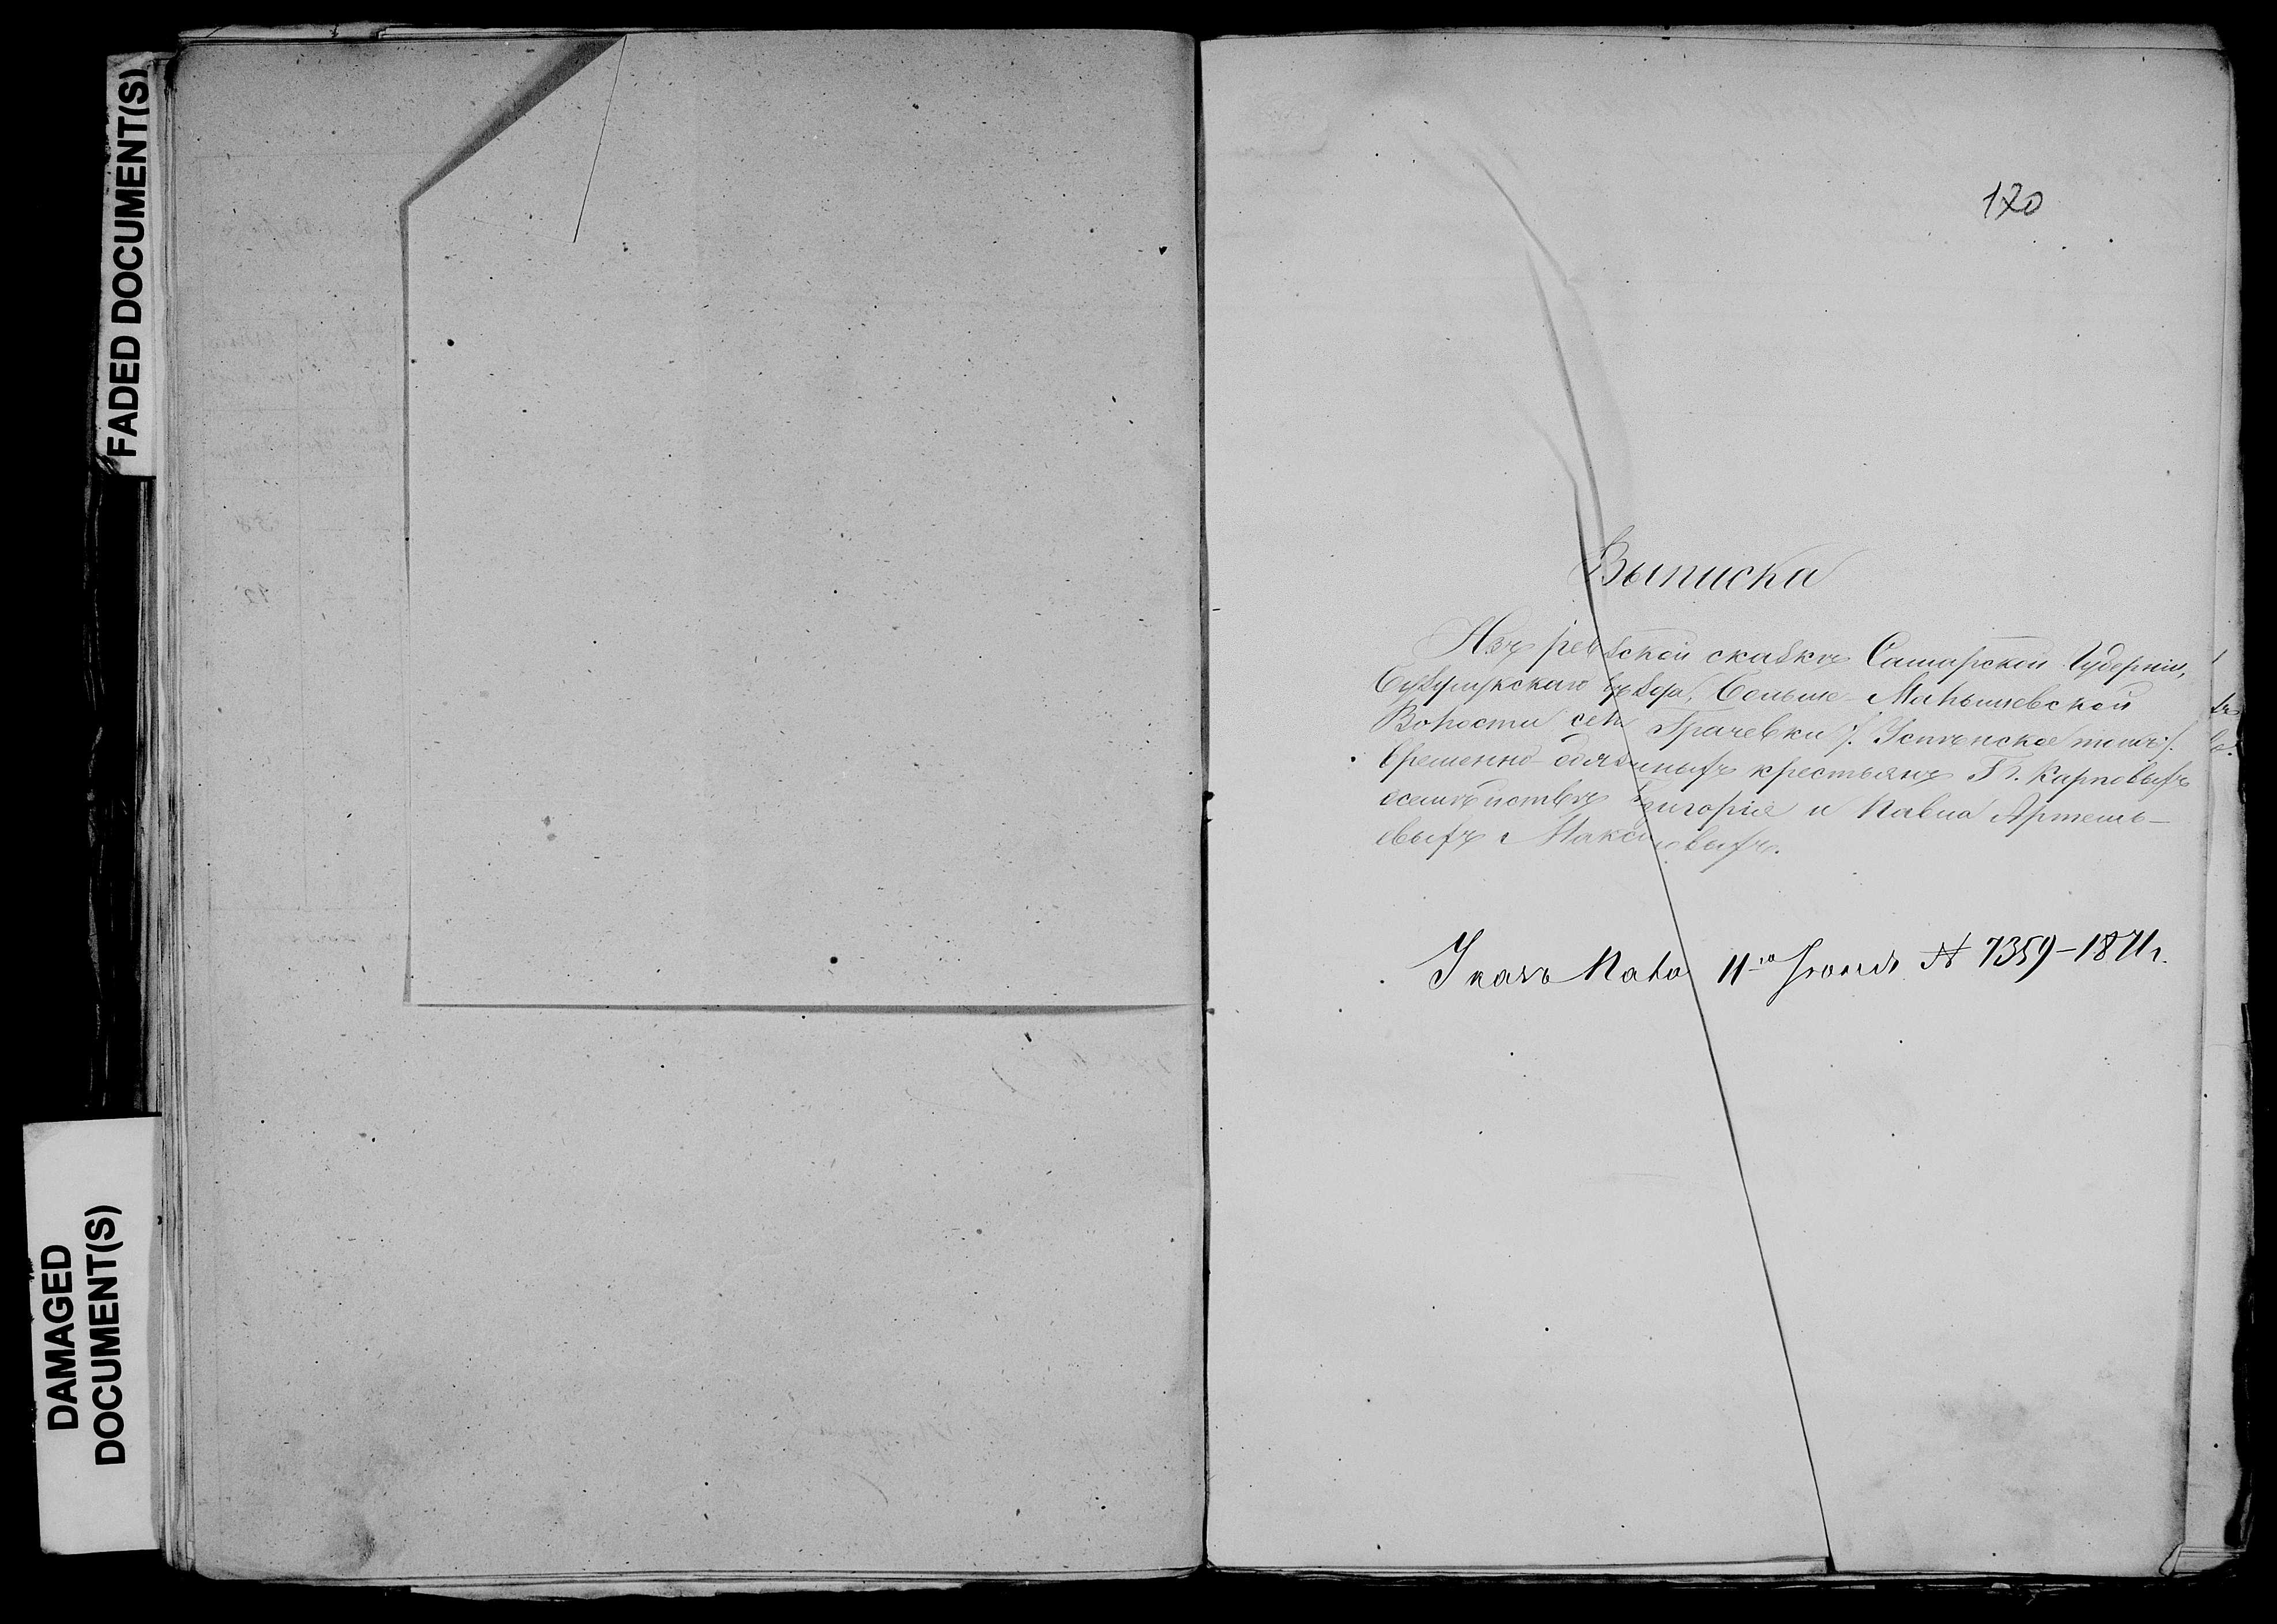 FADED DOCUMENT(S)
DAMAGED
DOCUMENT(S)
170
Выписка
Изъ ревизской сказки Самарской Губерніи,
Бузулукскаго уѣзда, Больше-Малышевской
Волости сел. Грачевки /: Успѣнское тожъ:/
временно-обязанныхъ крестьянъ Г. Г. Карповыхъ
о семѣйствѣ Григорія и Павла Артемь-
евыхъ Максимовыхъ.
Указъ Пала 11го Іюня № 7359-1871г.